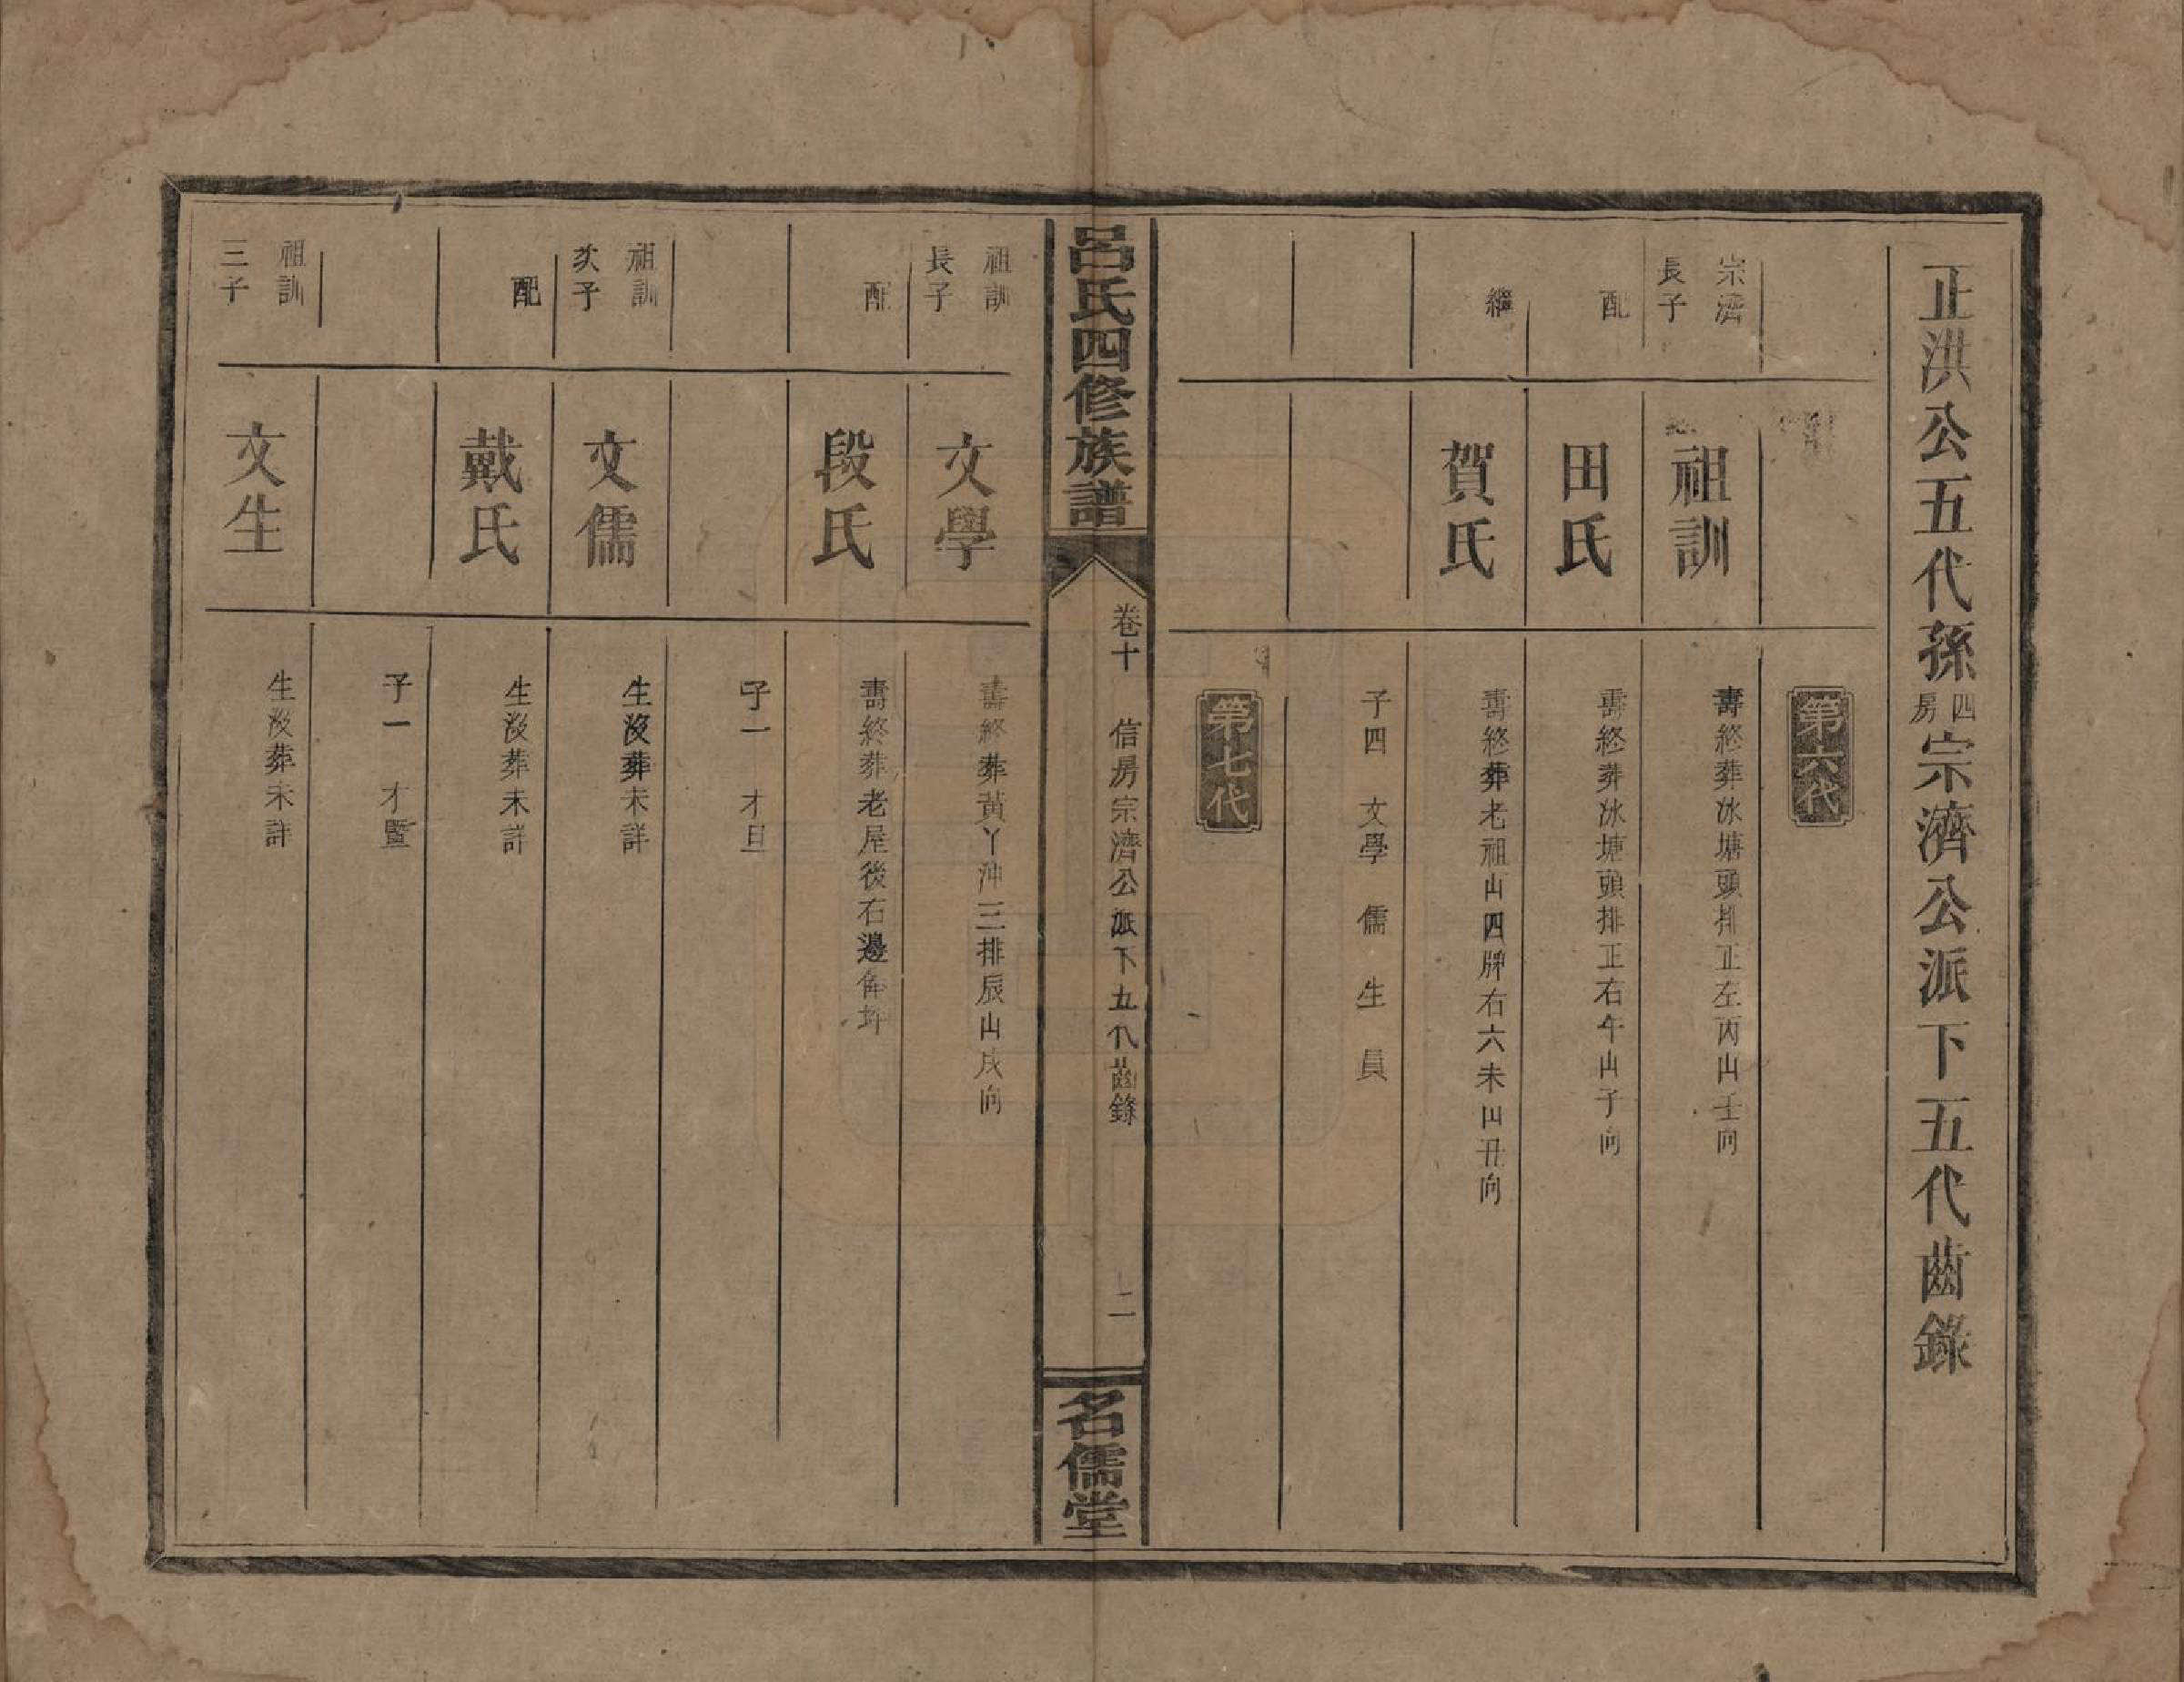 正洪公五代孫四房宗濟公派下五代齒錄
第六代
宗濟長子
祖訓
壽終葬冰塘頭排正左丙山壬向
配
田氏
壽終葬冰塘頭排正右午山子向
繼
賀氏
壽終葬老祖山四牌右六未山丑向
子四 文學 儒 生 員
第七代
呂氏四修族譜
卷十 信房宗濟公派下五代齒錄 二
名儒堂
祖訓長子
文學
壽終葬黃丫沖三排辰山戌向
配
段氏
壽終葬老屋後右邊
子一 才旦
祖訓次子
文儒
生沒葬未詳
配
戴氏
生沒葬未詳
子一 才暨
祖訓三子
文生
生沒葬未詳